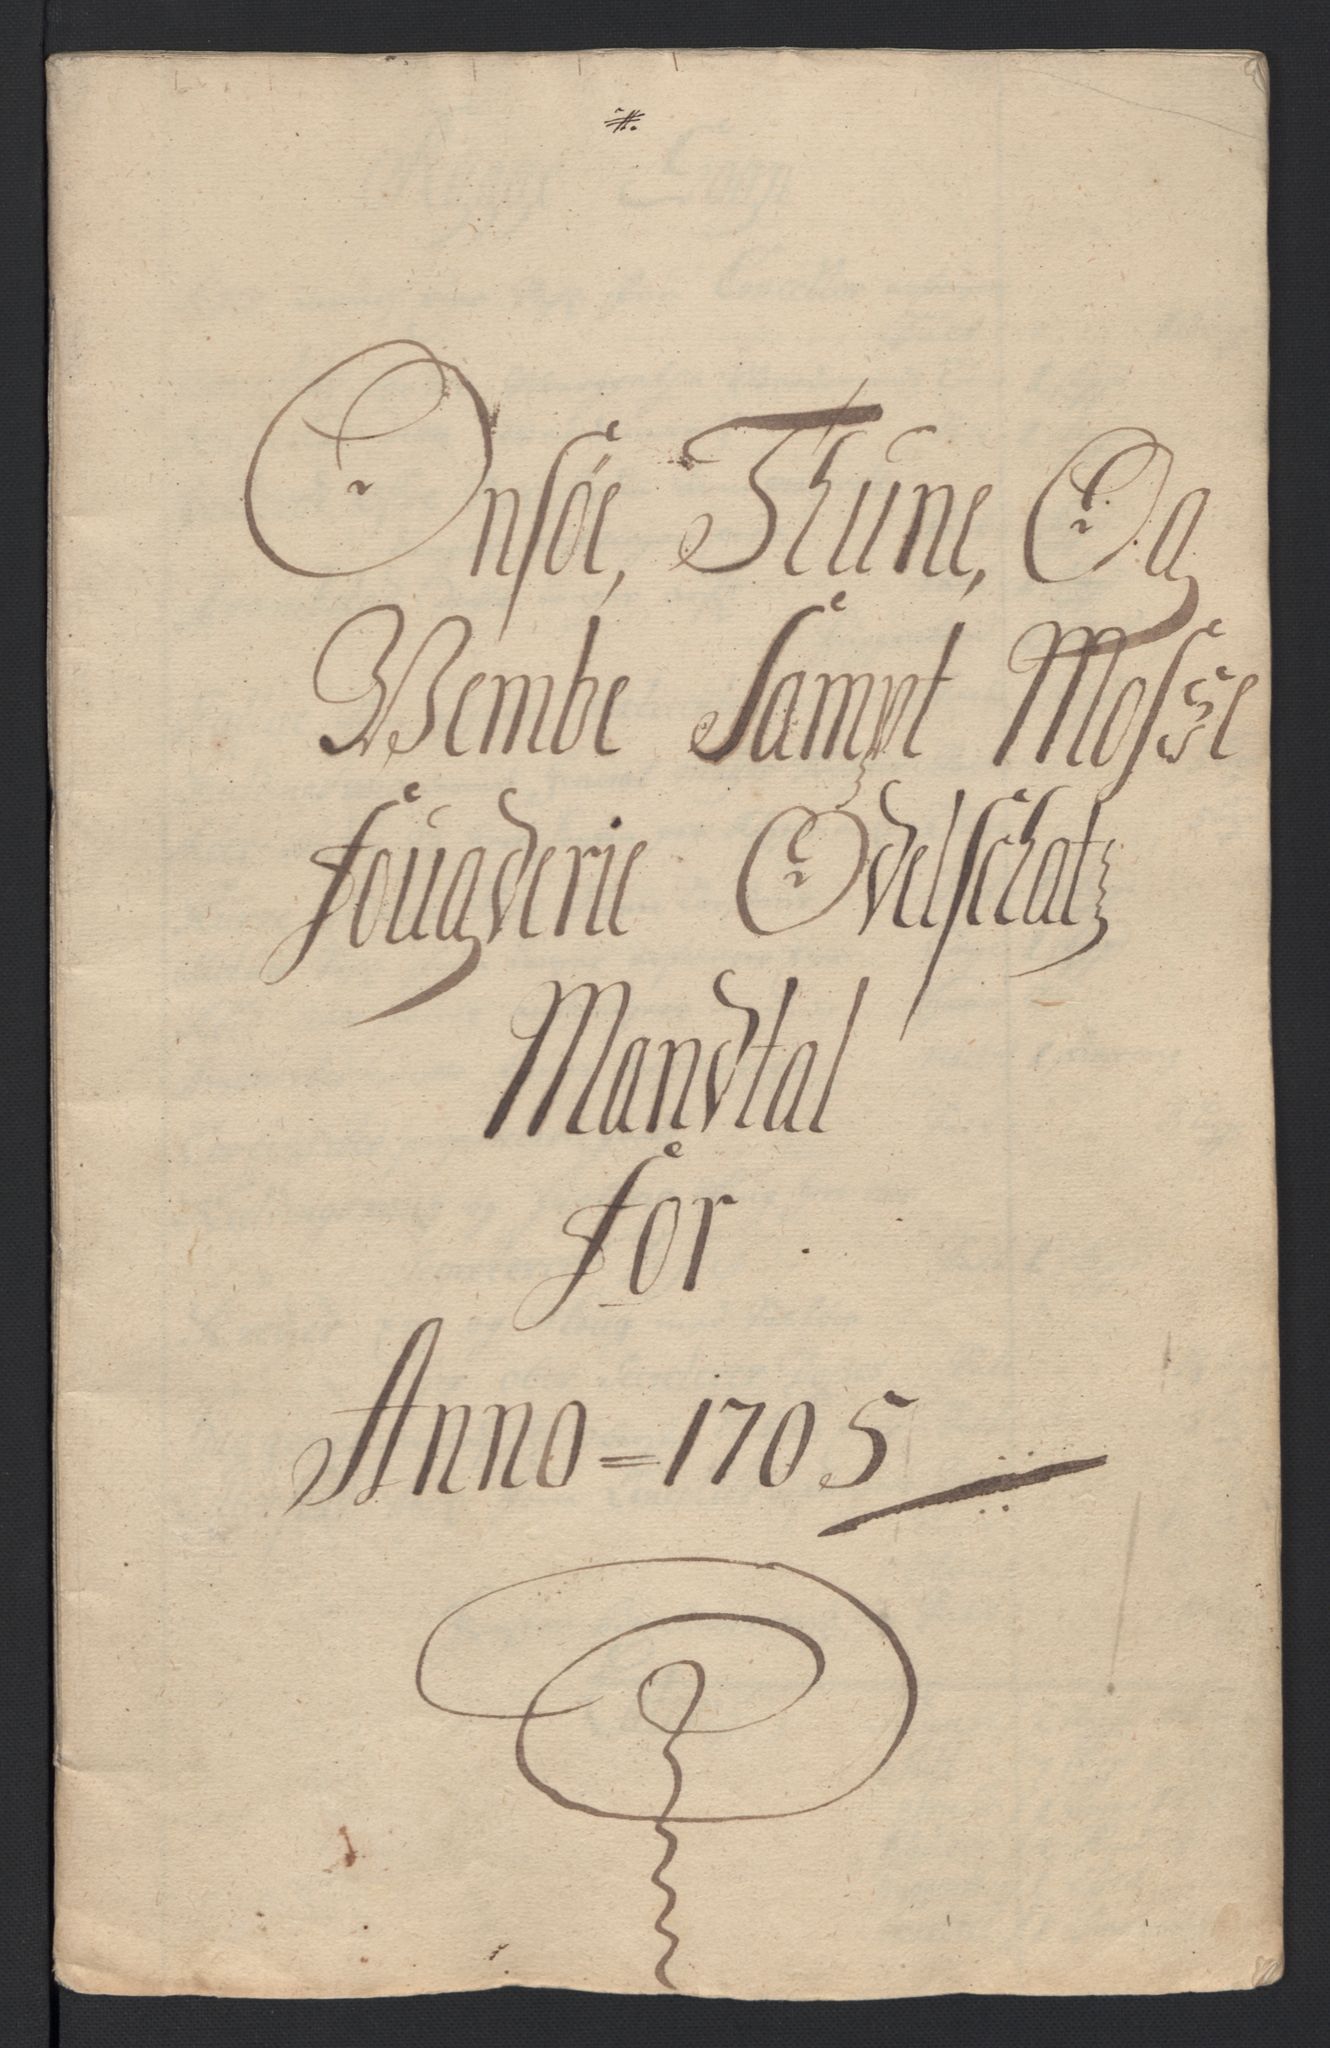 Onsöe, Thune, Og
Wembe Sampt Mosse
fougderie Odelschatz
Mandtal
for
Anno = 1705